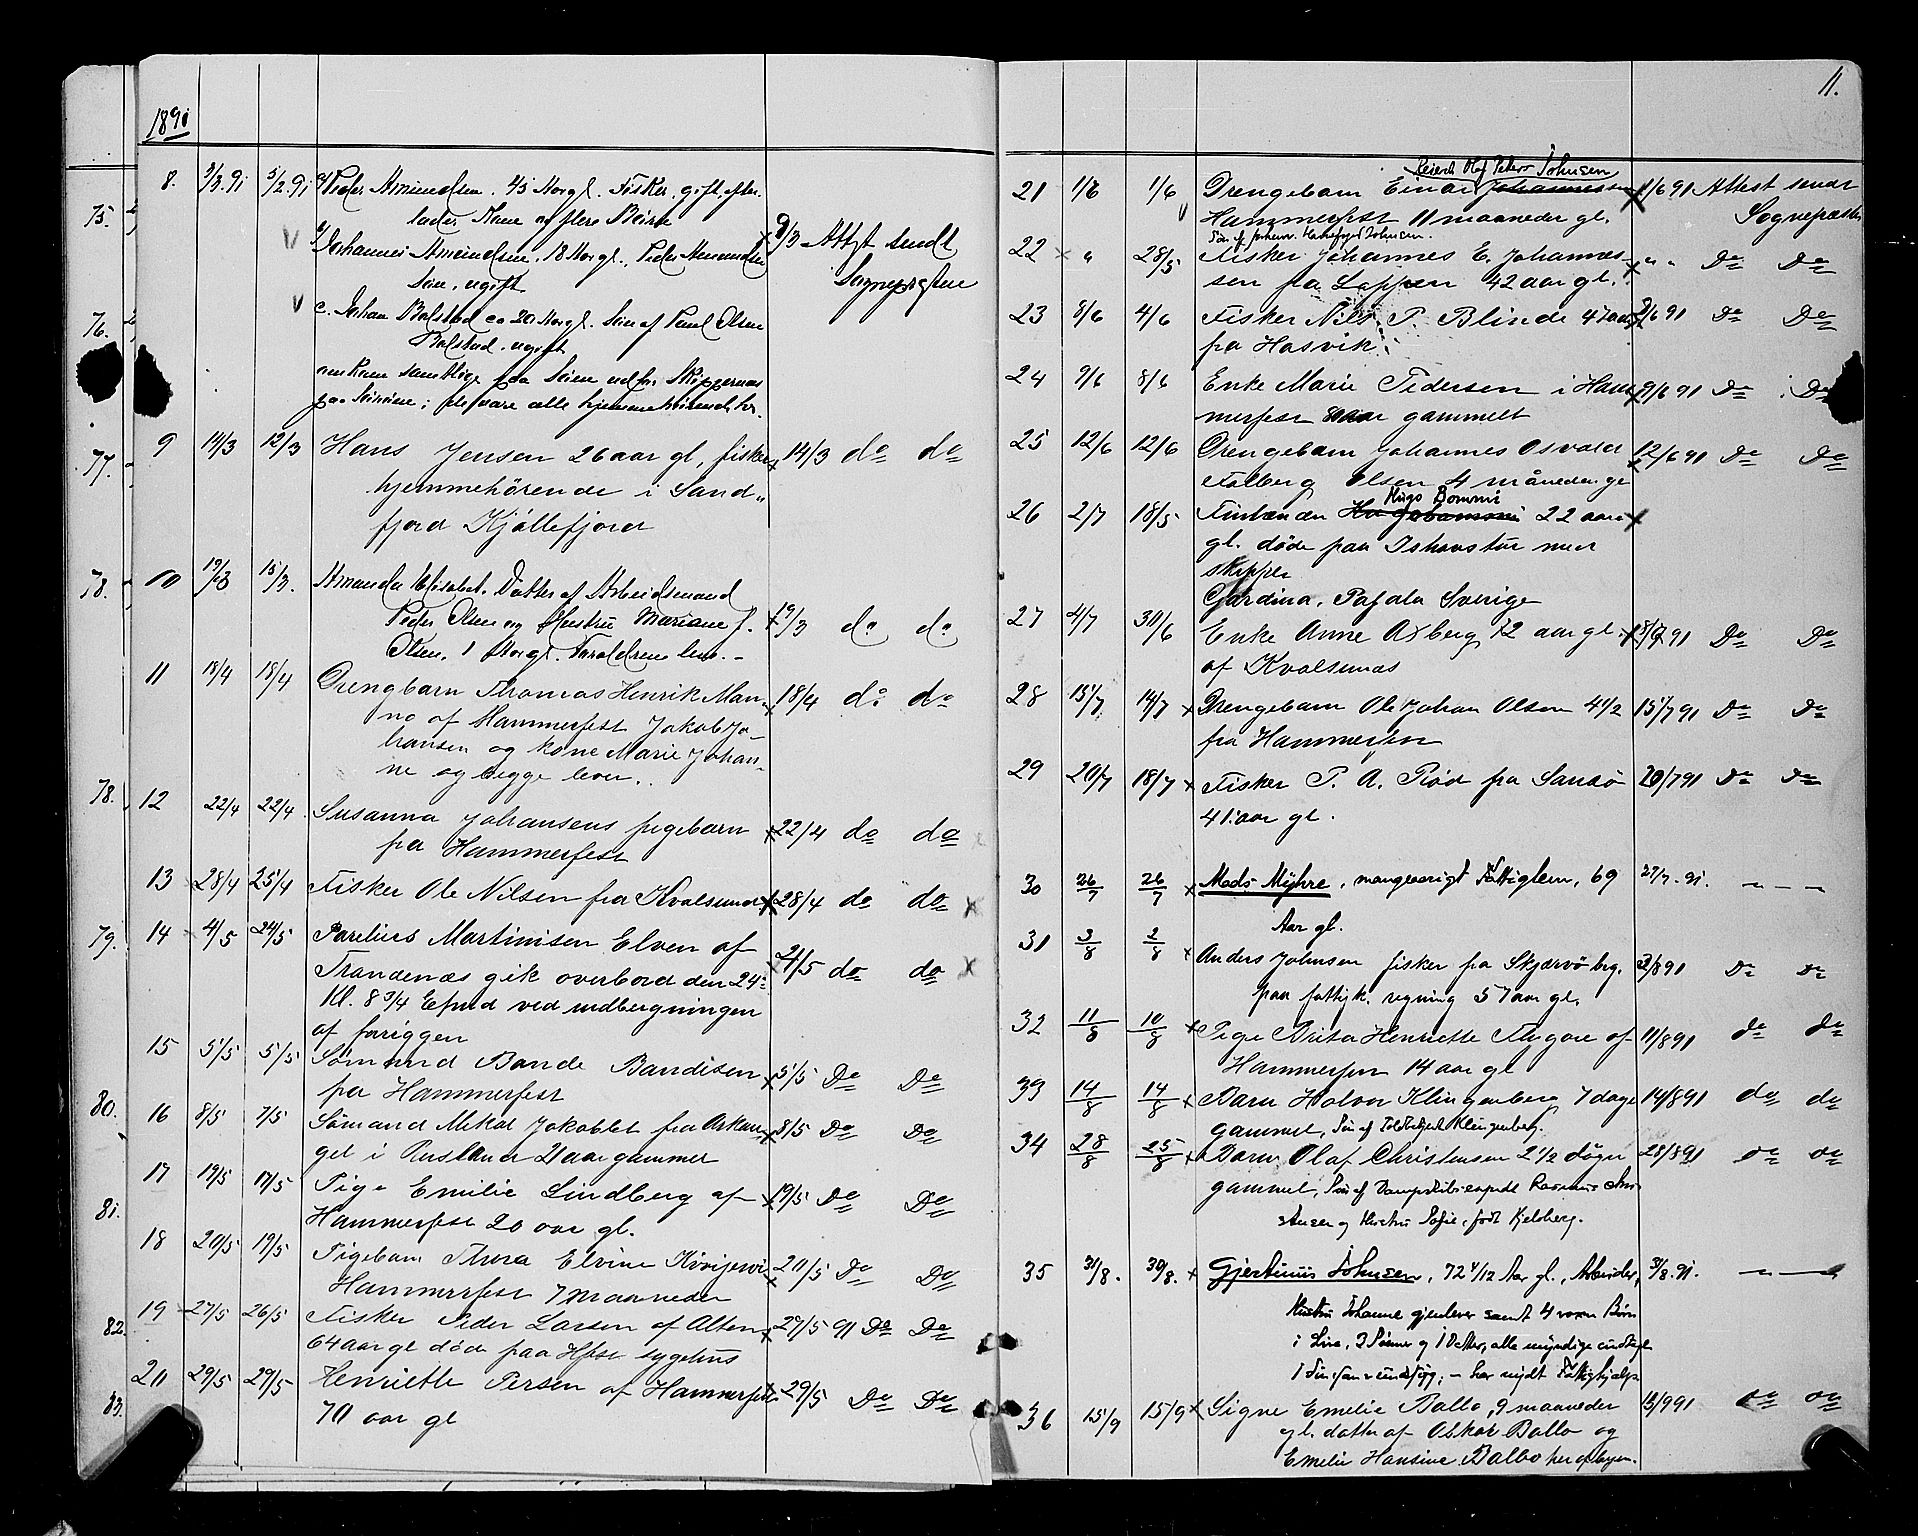 1891
8. 3/3.91 5/2.91 a) Peder Amundsen. 45 Aar gl. Fisker, gift, efter-
lader Kone og flere Børn
b) Johannes Amundsen, 18 Aar gl., Peder Amundsen
Søn, ugift 9/3 Attest sendt
Sognepresten
c. Johan Balstad ca 20 Aar gl. Søn af Paul Olsen
Balstad. ugift
omkom samtlige paa Søen udfor Skippernes
9 14/3 12/3 Hans Jensen 26 aar gl, fisker 14/3 do do
hjemmehörende i Sand„
fjord Kjöllefjord
10 19/3 15/3. Amanda Elisabet. Datter af Arbeidsmand
Peder Olsen og Hustru Mariane f. 19/3 do do
Olsen. 1 Aar gl. Forældrene leve. -
11 18/4 18/4 Drengbarn Thomas Henrik Man- 18/4 do do
ne af Hammerfest Jakob Jo-
hansen og kone Marie Johan-
ne og begge lever.
12 22/4 22/4 Susanna Johansens pigebarn 22/4 do do
fra Hammerfest
13 28/4 25/4 Fisker Ole Nilsen fra Kvalsund 28/4 do do
14 4/5 24/5 Parelius Martinisen Elven af
Trandenæs gik overbord den 24de 21/5 do do
Kl. 8 3/4 Efmd ved indbergningen
af foriggen
15 5/5 5/5 Sömand Bande Bandisen 5/5 Do Do
fra Hammerfest
16 8/5 7/5 Sömand Mekal Jakoblet fra Arkan- 8/5 Do Do
gel i Rusland 21 aar gammel
17 19/5 17/5 Pige Emilie Lindberg af 19/5 Do Do
Hammerfest 20 aar gl.
18 20/5 19/5 Pigebarn Thora Elvine 20/5 Do Do
Hammerfest 7 maaneder
19 27/5 26/5 Fisker Peder Larsen af Alten 27/5 91 Do Do
64 aar gl döde paa Hfest sygehus
20 29/5 29/5 Henriette Persen af Hammerfest 29/5 Do Do
70 aar gl
75.
76.
77.
78.
78.
79.
80.
81.
82
83.
11.
Olaf Peder Johnsen
21 1/6 1/6 Drengebarn Einar Johannessen 1/6 91 Attest sendt
Hammerfest 11 maaneder gl. Sognepræsten
22 " 28/5 Fisker Johannes E. Johannes- " " Do Do
sen fra Loppen 42 aar gl.
23 8/6 4/6 Fisker Nils P. Blinde 47 aar 8/6 91 Do Do
fra Hasvik
24 9/6 8/6 Enke Marie Pedersen i Ham 9/6 91 Do Do
merfest gammelt
25 12/6 12/6 Drengebarn Johannes Osvald 12/6 91 Do Do
Falberg Olsen 4 måneder gl
Hugo Bommi
26 2/7 18/5 Finlænder 22 aar
gl. döde paa Ishavstur med
skipper
Gardina, Pajala Sverige
27 4/7 30/6 Enke Anne Axberg 72 aar gl. 91 Do Do
af Kvalsunds
28 15/7 14/7 Drengebarn Ole Johan Olsen 4 1/2 15/7 91 Do Do
fra Hammerfest
29 20/7 18/7 Fisker P. A. Röd fra Sandö 20/7 91 Do Do
41 aar gl.
30 26/7 26/7 Mads Myhre, mangeaarigt Fattiglem, 69 27/7. 91. — —
Aar gl.
31 3/8 2/8 Anders Johnsen fisker fra Skjærvö beg. 3/8 91 Do Do
paa fattigk. regning 57 aar gl.
32 11/8 10/8 Pige Brita Henriette af 11/8 91 do do
Hammerfest 14 aar gl
33 14/8 14/8 Barn Halvor Klingenberg 7 dage 14/8 91 do do
gammel, Søn af Toldbetjent Klingenberg.
34 28/8 25/8 Barn Olaf Christensen 2 1/2 dögn 28/8 91 Do Do
gammel, Søn af Rasmus Chri-
stensen og Hustru Sofie, født Kjelsberg.
35 31/8. 30/8. Gjertinius Johnsen, 72 4/12 Aar gl., Arbeider, 31/8. 91. — —
Hustru Johanne gjenlever samt 4 voxne Børn
i Live, 3 Sønner og 1 Datter, alle myndige
har nydt Fattighjælp
36 15/9 15/9 Signe Emelie Ballo, 9 maaneder 15/9 91 Do Do
gl. datter af Oskar Ballo og
Emelie Hansine Balbo her af byen.